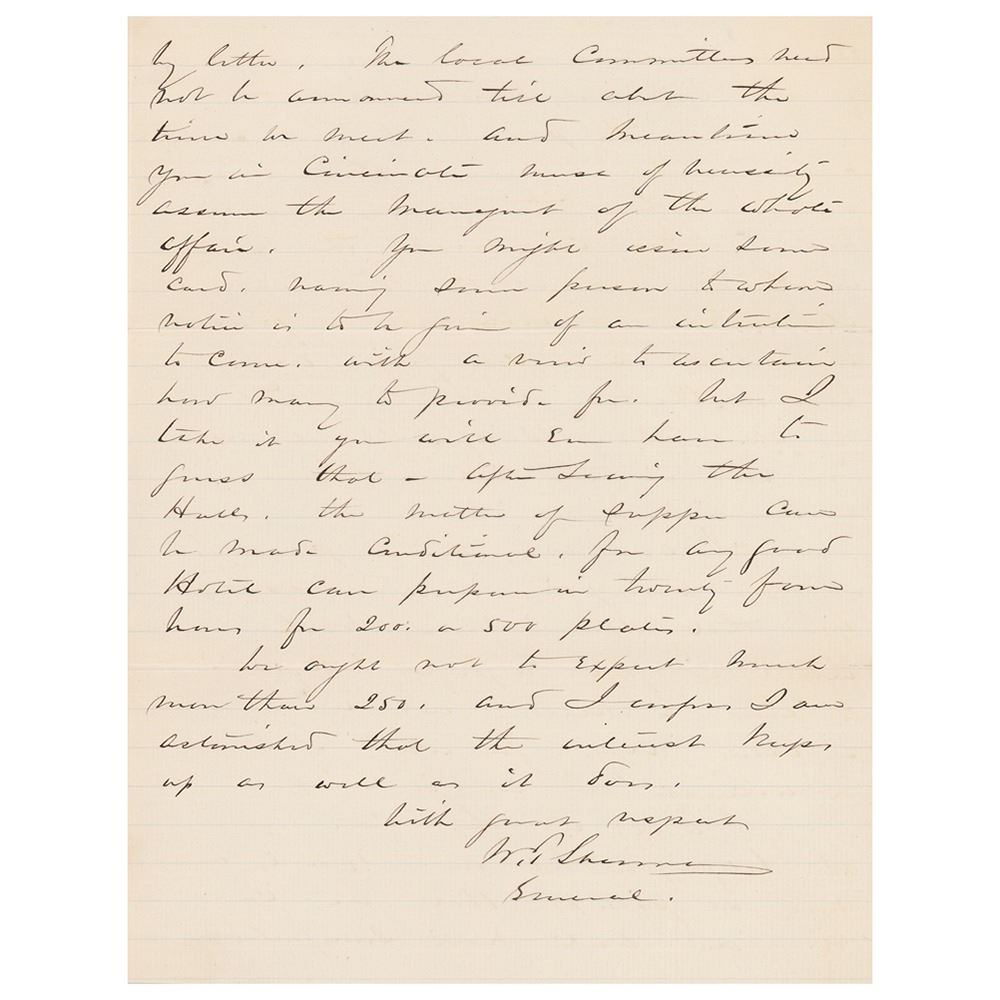 by letter. The local Committees need
not be announced till abot the
time we meet. and meantime
you in Cincinati must of necessity
assume the Managmt of the whole
affair. You might issue some
card. naming some person to whom
notice is to be given of an intention
to come. with a view to ascertain
how many to provide for. but I
take it you will Even have to
guess that - after Seeing the
Halls. the matter of Supper can
be made Conditional. for any good
Hotel can prepare in twenty four
hours for 200. or 500 plates.
We ought not to Expect much
more than 250. and I confess I am
astonished that the interest keeps
up as well as it does.
With great respect
W. T. Sherman
General.